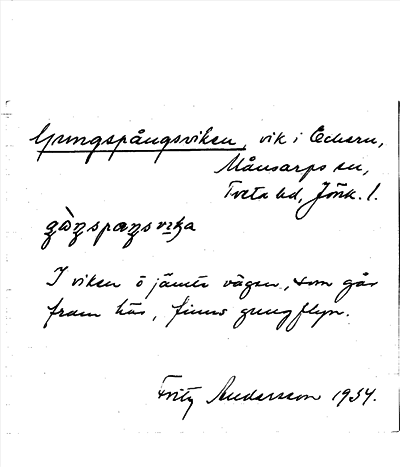 Gungspångsviken, vik i Eckern,
Månsarps sn,
Tveta hd, Jönk. l.
I viken ö jämte vägen, som går
fram här, finns gungflyn.
Fritz Andersson 1934.